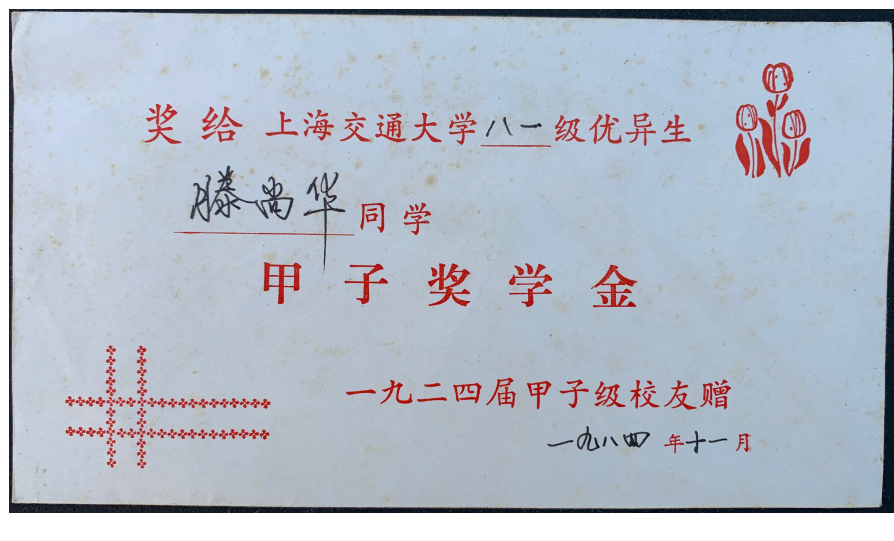 奖给 上海交通大学八一级优异生
滕尚华同学
甲子奖学金
一九二四届甲子级校友赠
一九八四年十一月